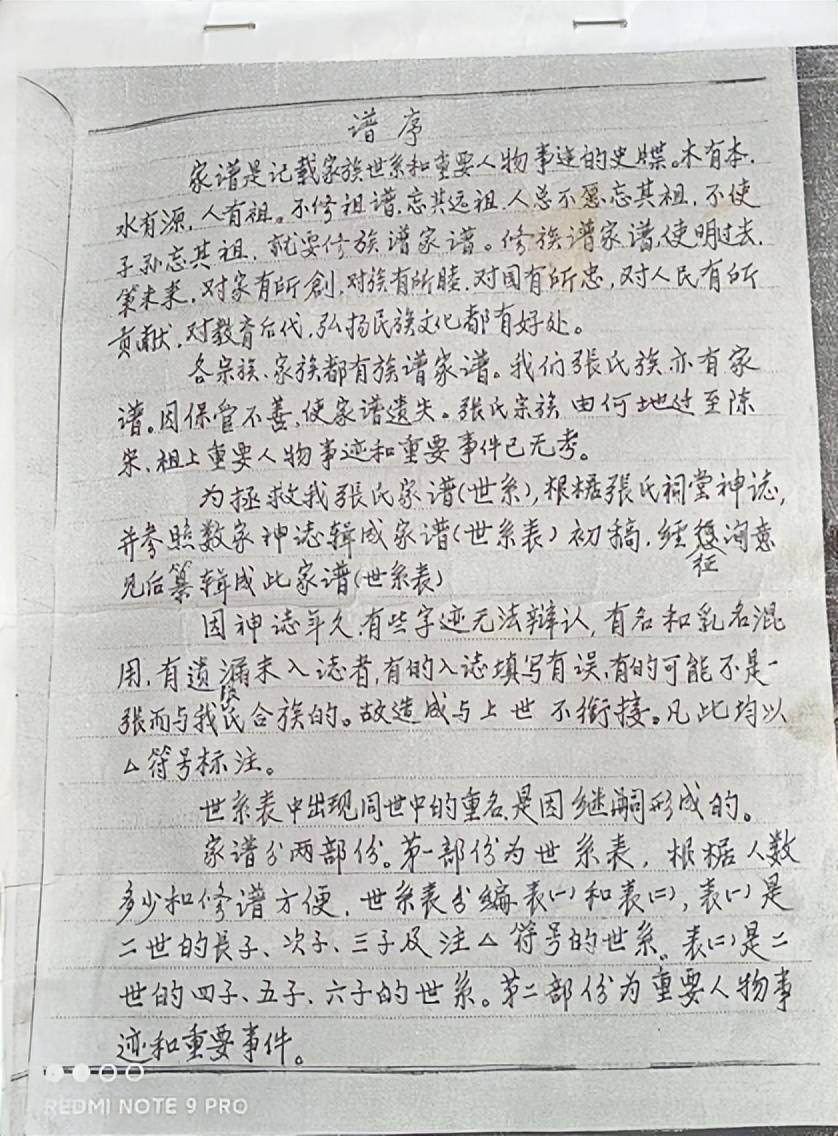 谱序
家谱是记载家族世系和重要人物事迹的史牒。木有本.
水有源,人有祖。不修祖谱,忘其远祖.人总不愿忘其祖,不使
子孙忘其祖,就要修族谱家谱。修族谱家谱,使明过去.
策未来,对家有所創,对族有所睦.对国有所忠,对人民有所
贡献,对教育后代,弘扬民族文化都有好处。
各宗族、家族都有族谱家谱。我们張氏族亦有家
谱。因保管不善,使家谱遗失。張氏宗族由何地迁至陈
宋,祖上重要人物事迹和重要事件已无考。
为拯救我張氏家谱(世系),根据張氏祠堂神誌,
并参照数家神誌辑成家谱(世系表)初稿,經征询意
见后纂辑成此家谱(世系表)
因神誌年久,有些字迹无法辩认,有名和乳名混
用,有遗漏未入誌者,有的入誌填写有误,有的可能不是一
张而与我张氏合族的。故造成与上世不衔接。凡此均以
△符号标注。
世系表中出现同世中的重名,是因继嗣形成的。
家谱分两部份。第一部份为世系表,根据人数
多少和修谱方便,世系表分编表(一)和表(二),表(一)是
二世的長子、次子、三子及注△符号的世系。表(二)是二
世的四子、五子、六子的世系。第二部份为重要人物事
迹和重要事件。
REDMI NOTE 9 PRO